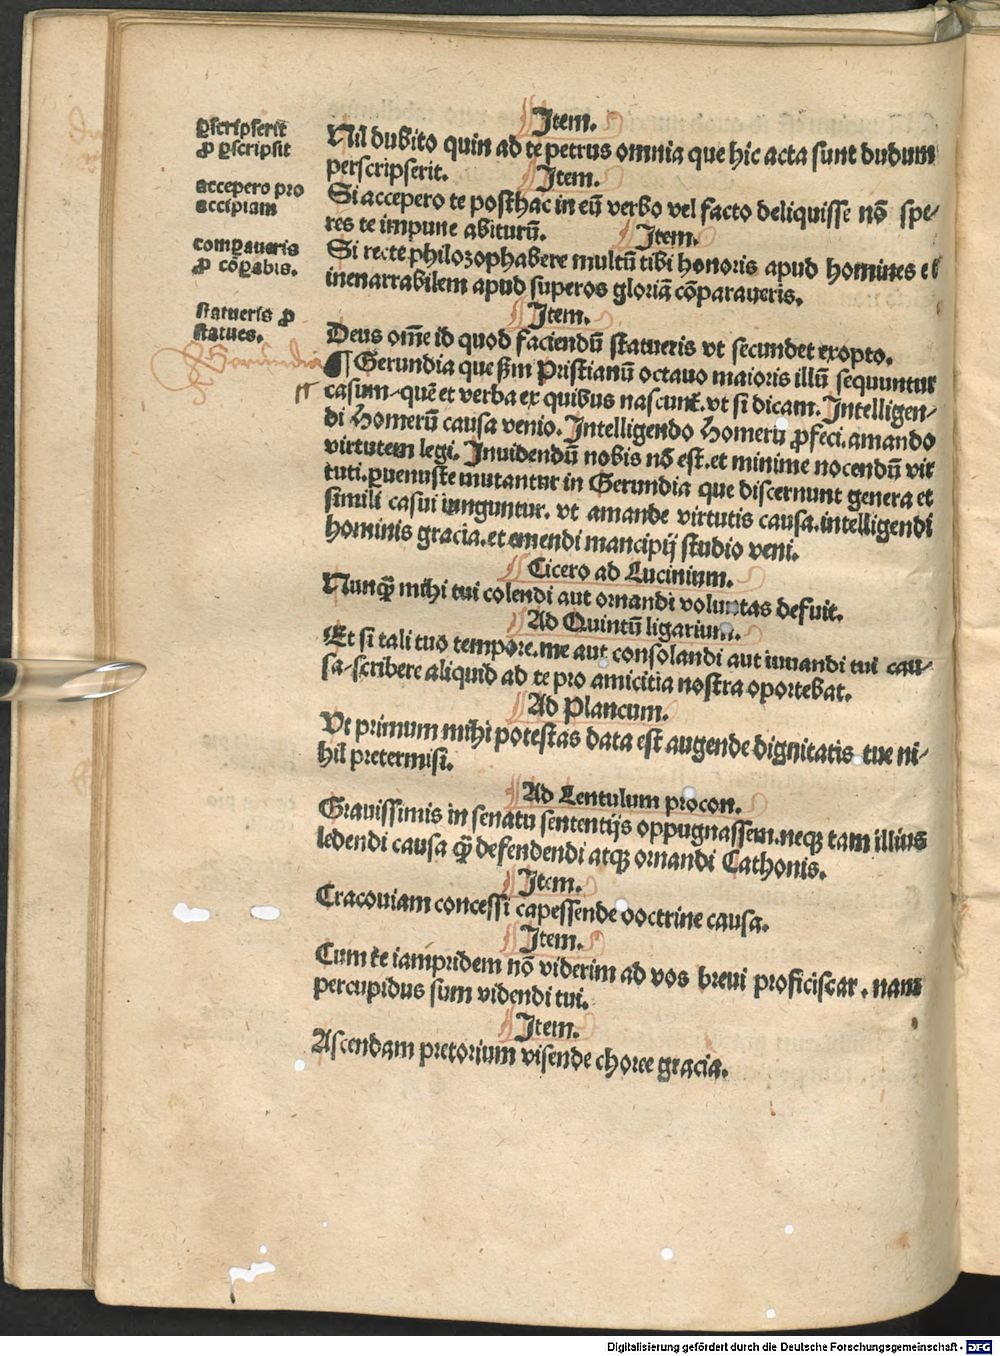 Item.
ꝑscripserit
ꝓ ꝑscripsit
Nil dubito quin ad te petrus omnia que hic acta sunt dudum
perscripserit. Item.
accepero pro
accipiam
Si accepero te posthac in eū verbo vel facto deliquisse nō spe-
res te impune abiturū. Item.
comꝑaueris
ꝓ cōꝑabis.
Si recte philozophabere multū tibi honoris apud homines et
inenarrabilem apud superos gloriā cōparaueris.
Item.
statueris ꝓ
statues.
Deus om̄e id quod faciendū statueris vt secundet exopto.
Gerundia
¶ Gerundia que ẜm Pristianū octauo maioris illū sequuntur
casum-quē et verba ex quibus nascunt̄. vt si dicam. Intelligen-
di Homerū causa venio. Intelligendo Homerū ꝓfeci. amando
virtutem legi. Inuidendū nobis nō est. et minime nocendū vir
tuti. ꝑuenuste mutantur in Gerundia que discernunt genera et
simili casui iunguntur. vt amande virtutis causa. intelligendi
hominis gracia. et emendi mancipij studio veni.
Cicero ad Lucinium.
Nunqꝫ̄ mihi tui colendi aut ornandi voluntas defuit.
Ad Quintū ligarium.
Et si tali tuo tempore. me aut consolandi aut iuuandi tui cau-
sa-scribere aliquid ad te pro amicitia nostra oportebat.
Ad Plancum.
Vt primum mihi potestas data est augende dignitatis tue ni-
hil pretermisi.
Ad Lentulum procon.
Grauissimis in senatu sententijs oppugnassem. neqꝫ tam illius
ledendi causa qꝫ̄ defendendi atqꝫ ornandi Cathonis.
Item.
Cracouiam concessi capessende doctrine causa.
Item.
Cum te iampridem nō viderim ad vos breui proficiscar. nam
percupidus sum videndi tui.
Item.
Ascendam pretorium visende choree gracia.
Digitalisierung gefördert durch die Deutsche Forschungsgemeinschaft - DFG